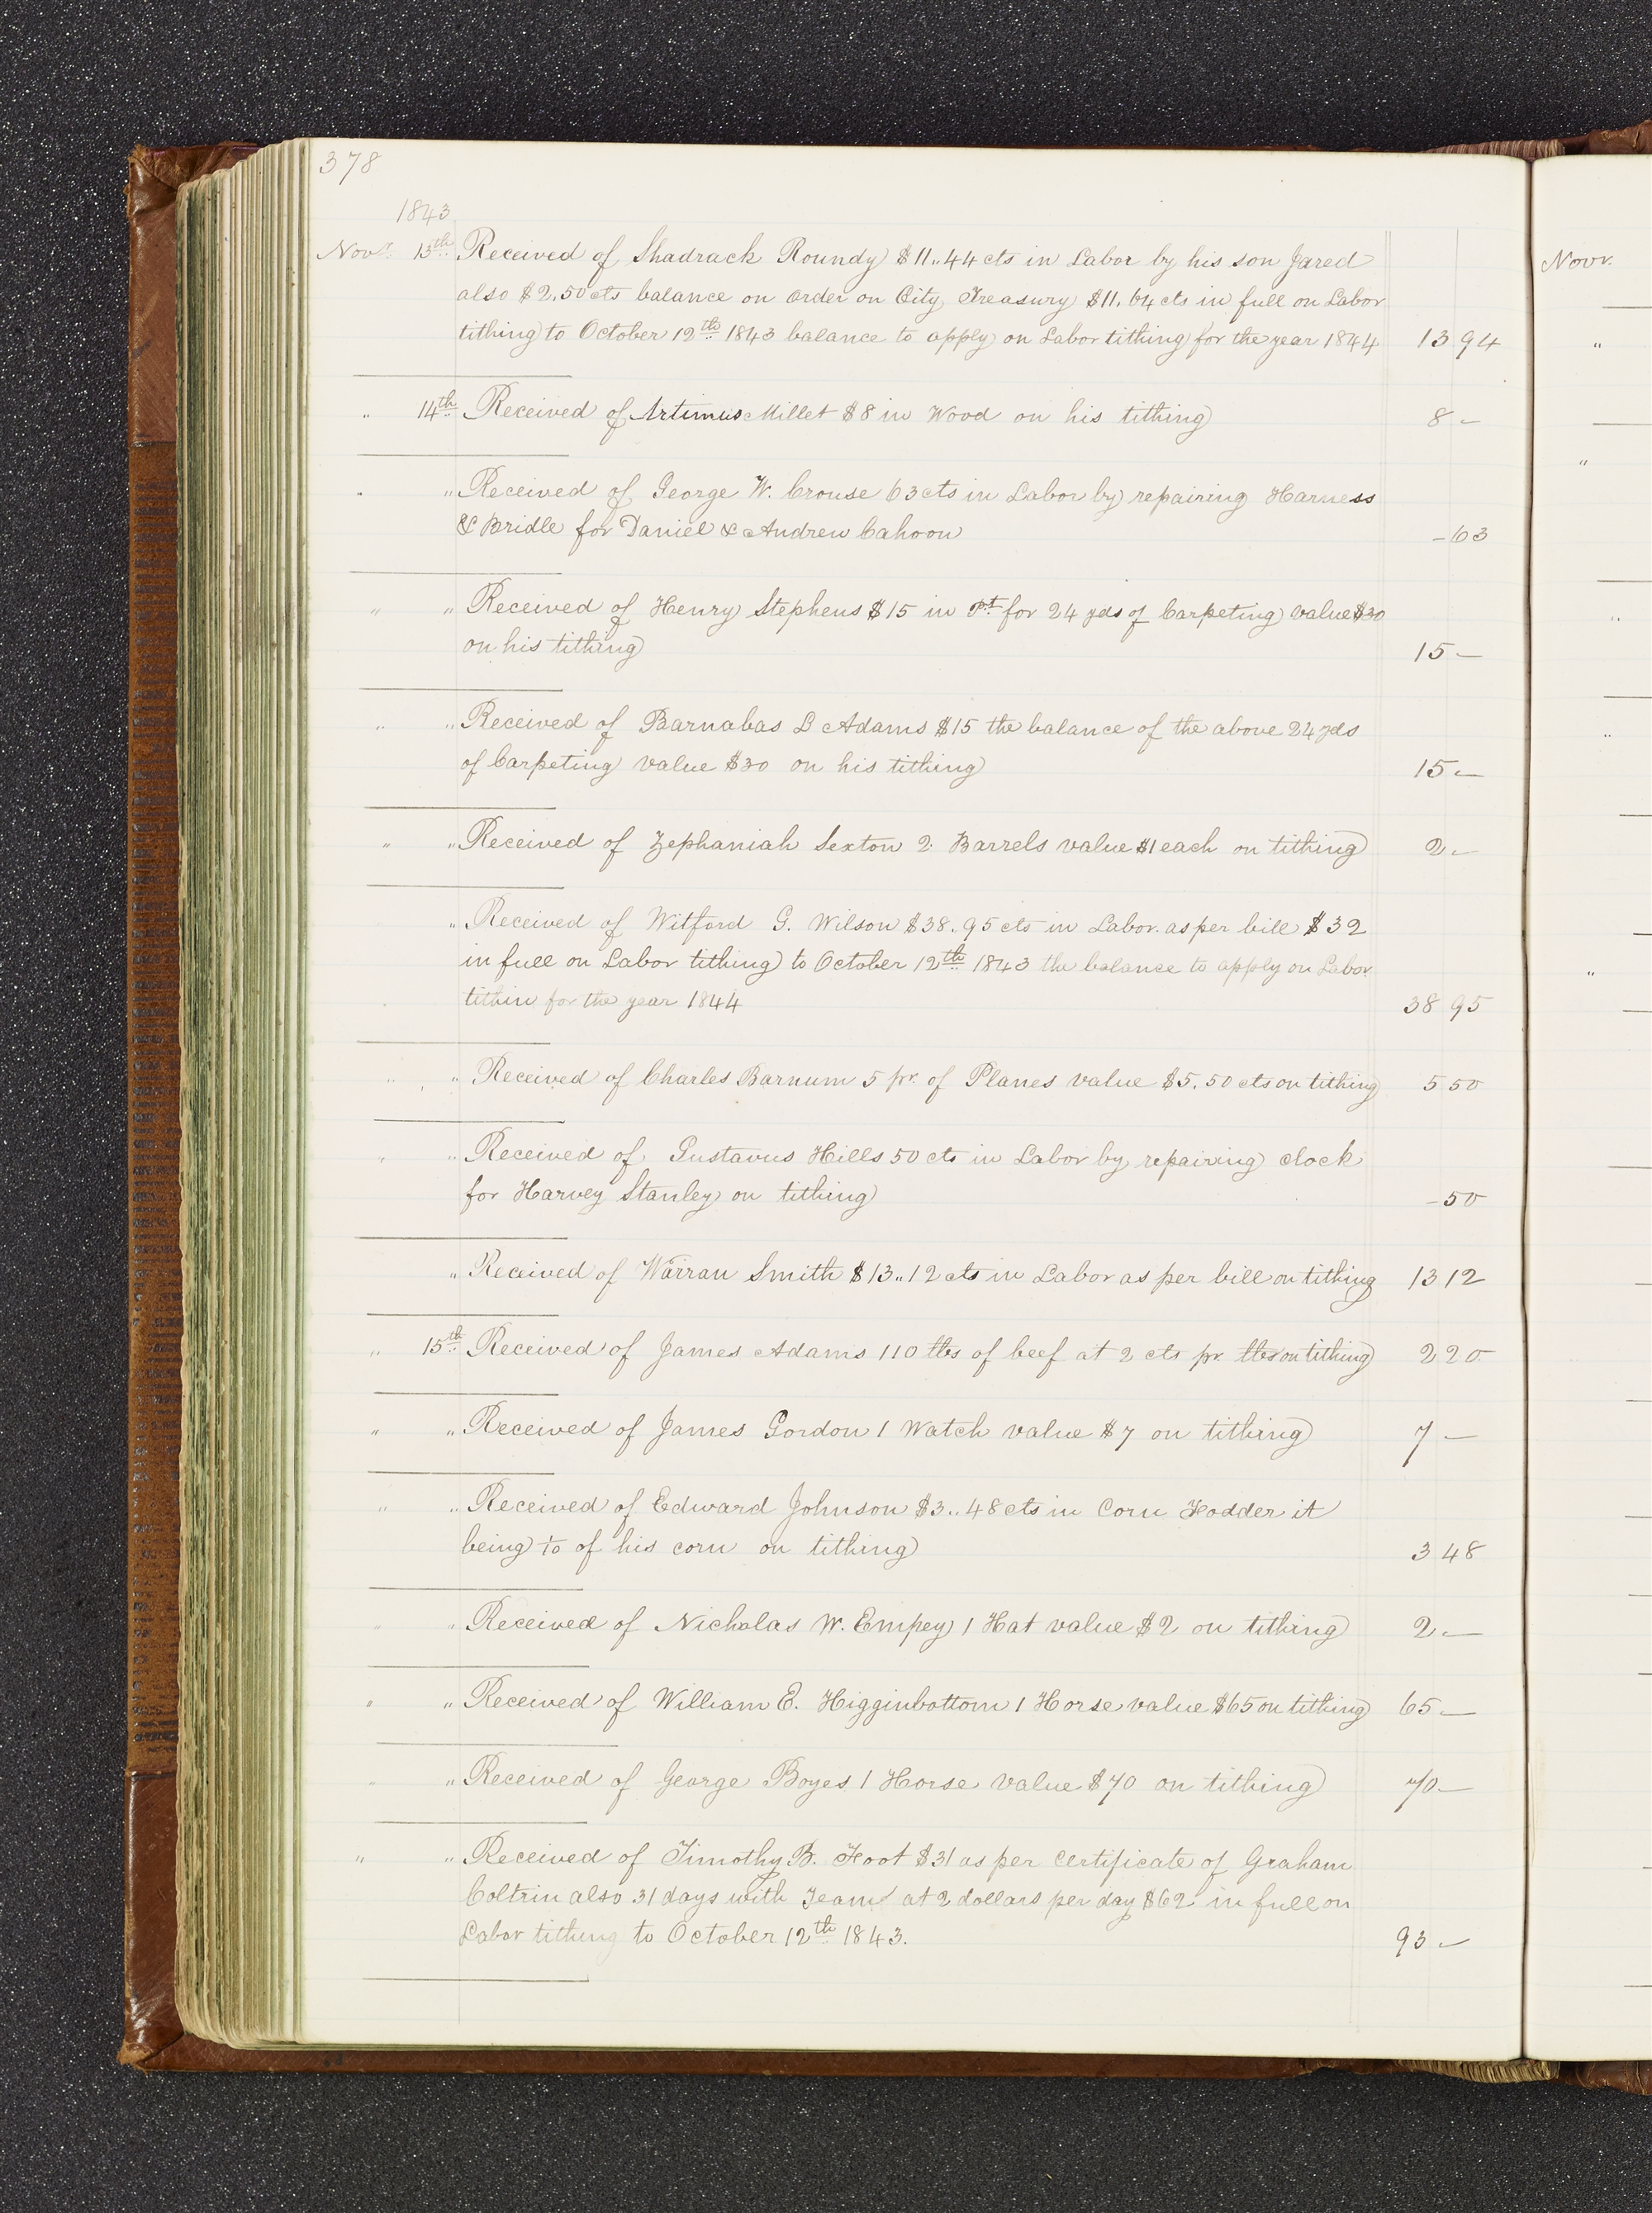 378
1843
Novr. 13th Received of Shadrack Roundy $11..44 cts in Labor by his son Jared
also $2.50 cts balance on order on City Treasury $11.64 cts in full on Labor
tithing to October 12th 1843 balance to apply on Labor tithing for the year 1844 13 94
" 14th Received of Artimus Millet $8 in Wood on his tithing 8 –
" " Received of George W. Crouse 63 cts in Labor by repairing Harness
& Bridle for Daniel & Andrew Cahoon – 63
" " Received of Henry Stephens $15 in Pt for 24 yds of Carpeting value $30
on his tithing 15 –
" " Received of Barnabas L Adams $15 the balance of the above 24 yds
of Carpeting value $30 on his tithing 15 –
" " Received of Zephaniah Sexton 2 Barrels value $1 each on tithing 2 –
" Received of Witford G. Wilson $38.95 cts in Labor as per bill $32
in full on Labor tithing to October 12th 1843 the balance to apply on Labor
tithin for the year 1844 38 95
" " Received of Charles Barnum 5 pr. of Planes value $5.50 cts on tithing 5 50
" " Received of Gustavus Hills 50 cts in Labor by repairing clock
for Harvey Stanley on tithing – 50
" Received of Warran Smith $13..12 cts in Labor as per bill on tithing 13 12
" 15th Received of James Adams 110 lbs of beef at 2 cts pr lbs on tithing 2 20
" " Received of James Gordon 1 Watch value $7 on tithing 7 –
" " Received of Edward Johnson $3..48 cts in Corn Fodder it
being 1/10 of his corn on tithing 3 48
" " Received of Nicholas W. Empey 1 Hat value $2 on tithing 2 –
" " Received of William E. Higginbottom 1 Horse value $65 on tithing 65 –
" " Received of George Boyes 1 Horse value $70 on tithing 70 –
" " Received of Timothy B. Foot $31 as per certificate of Graham
Coltrin also 31 days with Team at 2 dollars per day $62 in full on
Labor tithing to October 12th 1843. 93 –
Novr.
"
"
"
"
"